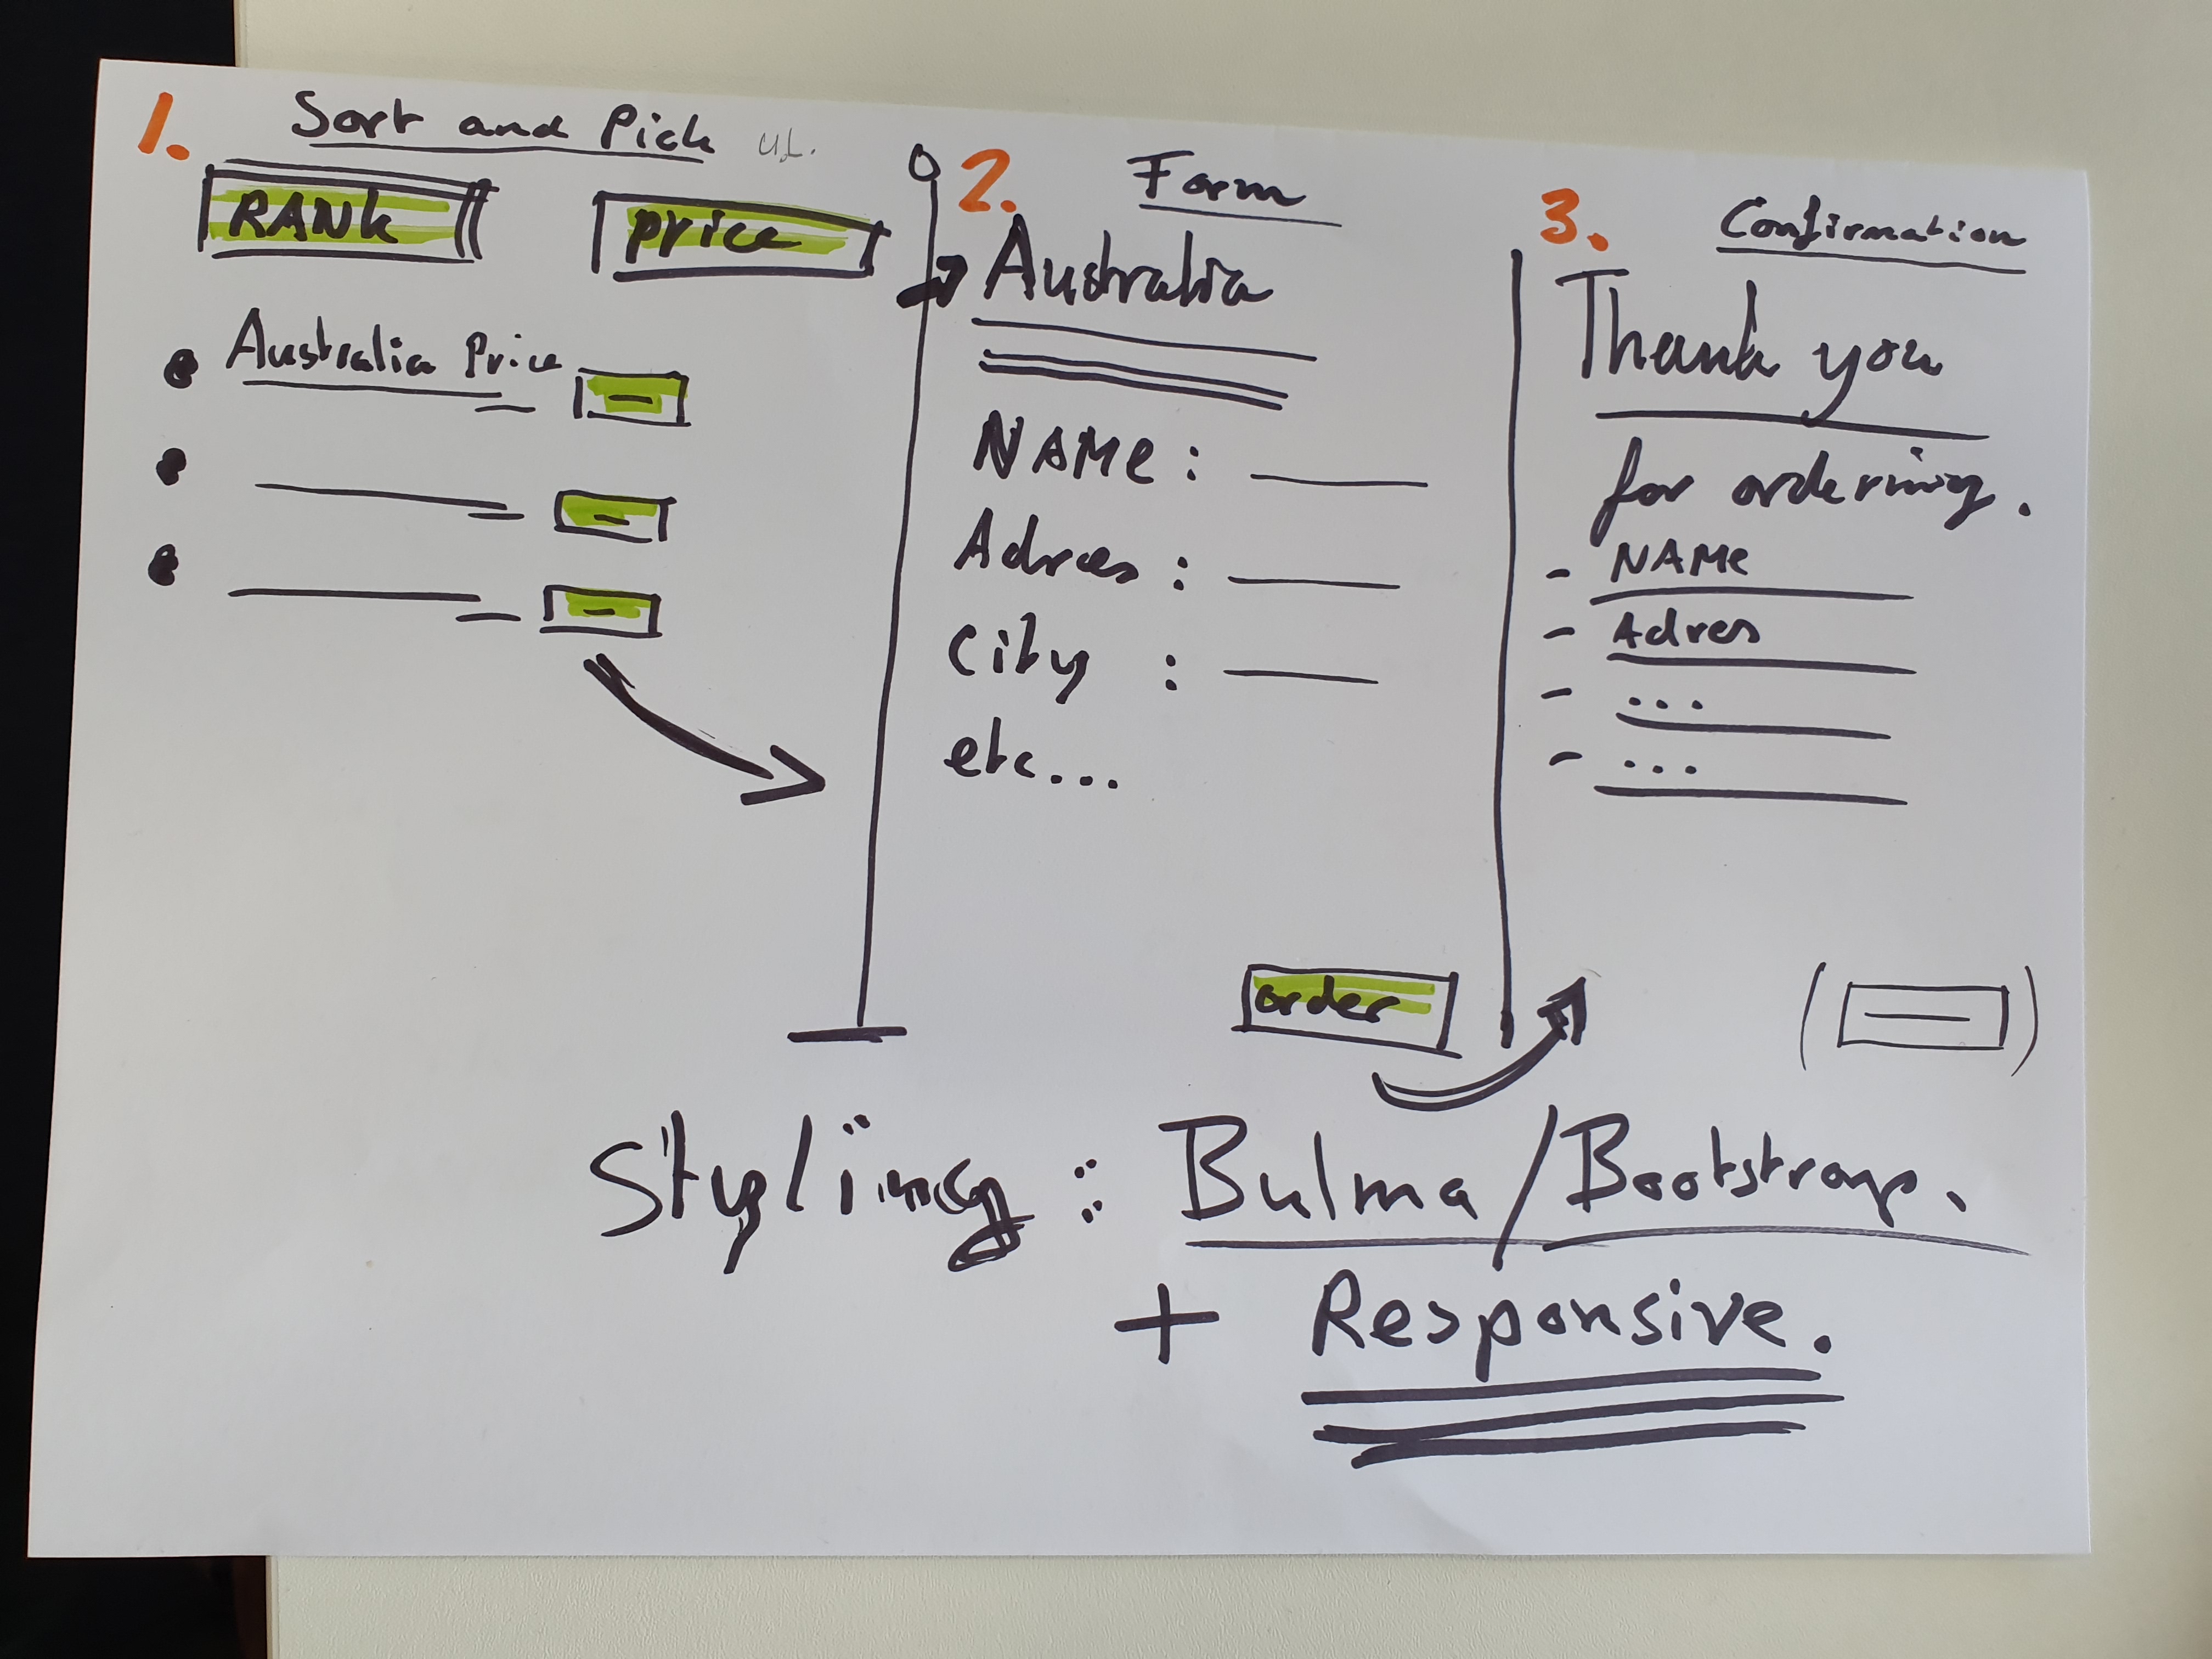 1. Sort and Pick
RANK
price
Australia Price
2. Form
Australia
NAME :
Adres :
City :
etc...
order
3. Confirmation
Thank you
for ordering.
- NAME
- Adres
- ...
- ...
Styling : Bulma/Bootstrap.
+ Responsive.